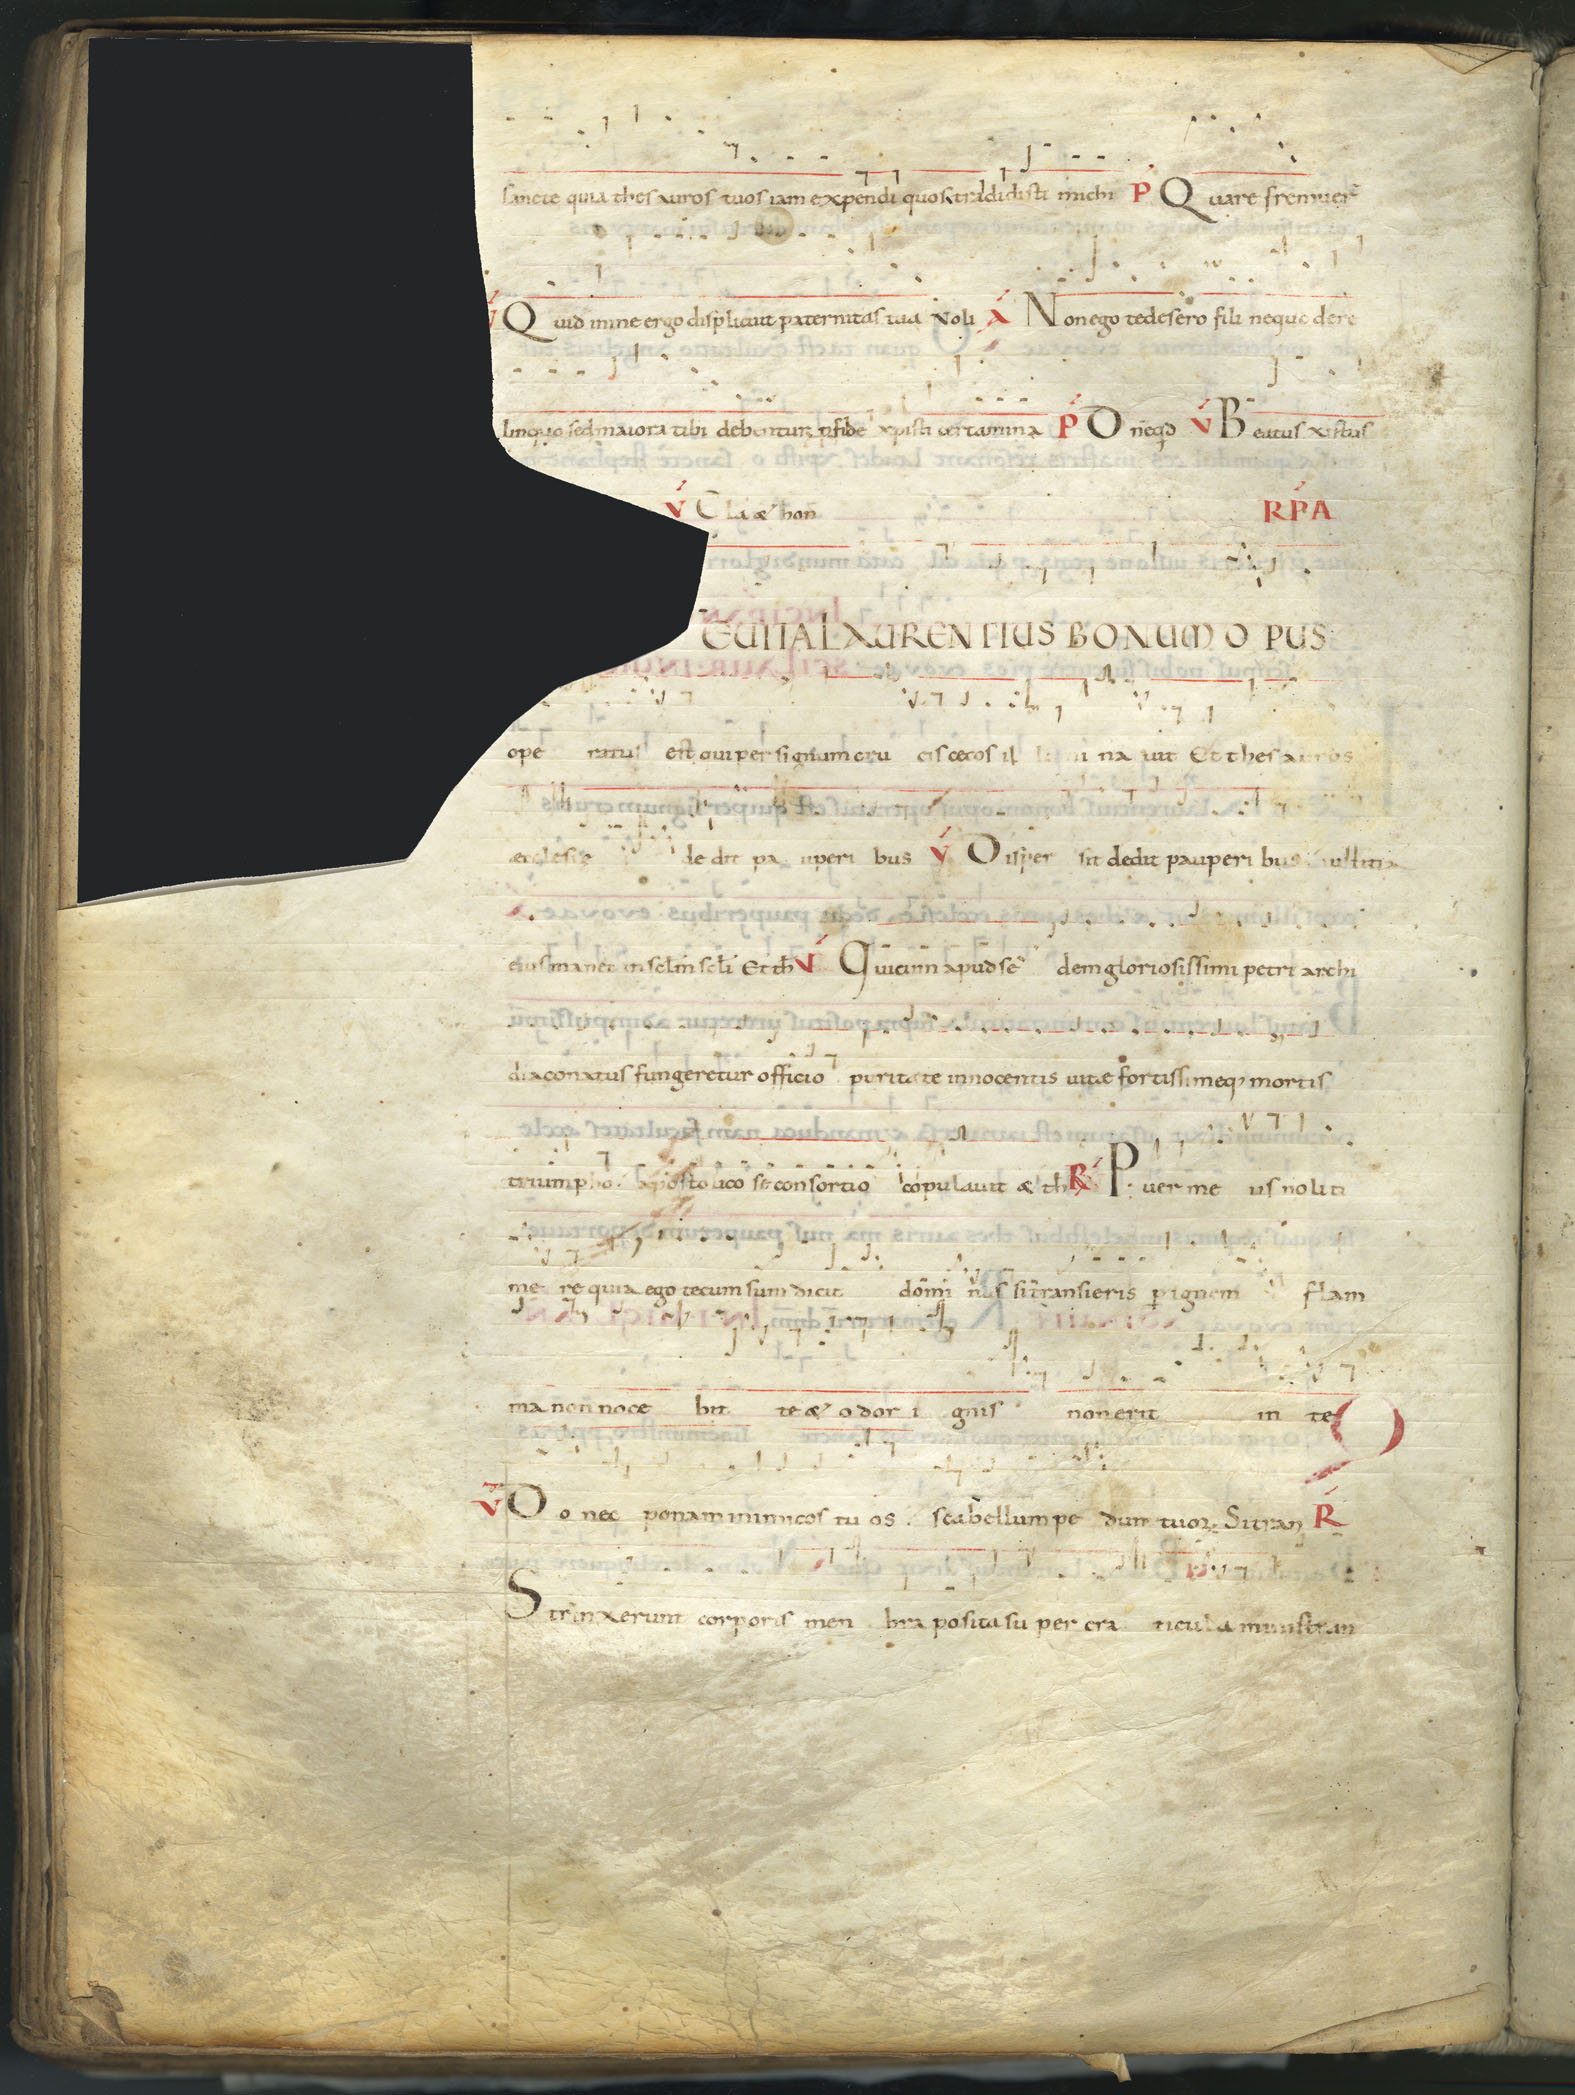 sancte quia thesauros tuos iam expendi quos tradidisti michi P Quare fremuer̄
V Quid in me ergo displicuit paternitas tua Noli A Non ego te desero fili neque dere
linquo sed maiora tibi debentur fide xpisti certamina P Dn̄eqd V Beatus xistus
V Gła & hon RPA
EUITA LAURENTIUS BONUM OPUS
operatus est qui per signum crucis cecos il na uit Et thesauros
ecclesie dedit pauperibus V Dispersit dedit pauperibus iustitia
eius manet in sclm scli Et th V Qui cum apud se dem gloriosissimi petri archi
diaconatus fungeretur officio puritate innocentis uitae fortissimeq; mortis
triumpho apostolico se consortio copulauit & th R Puer meus noli ti
mere quia ego tecum sum dicit domi nus si transieris p ignem flam
ma non noce bit te & odor ignis non erit in te
V Donec ponam inimicos tuos scabellum pedum tuor Si tran R
Strinxerunt corporis menbra posita super craticula ministran